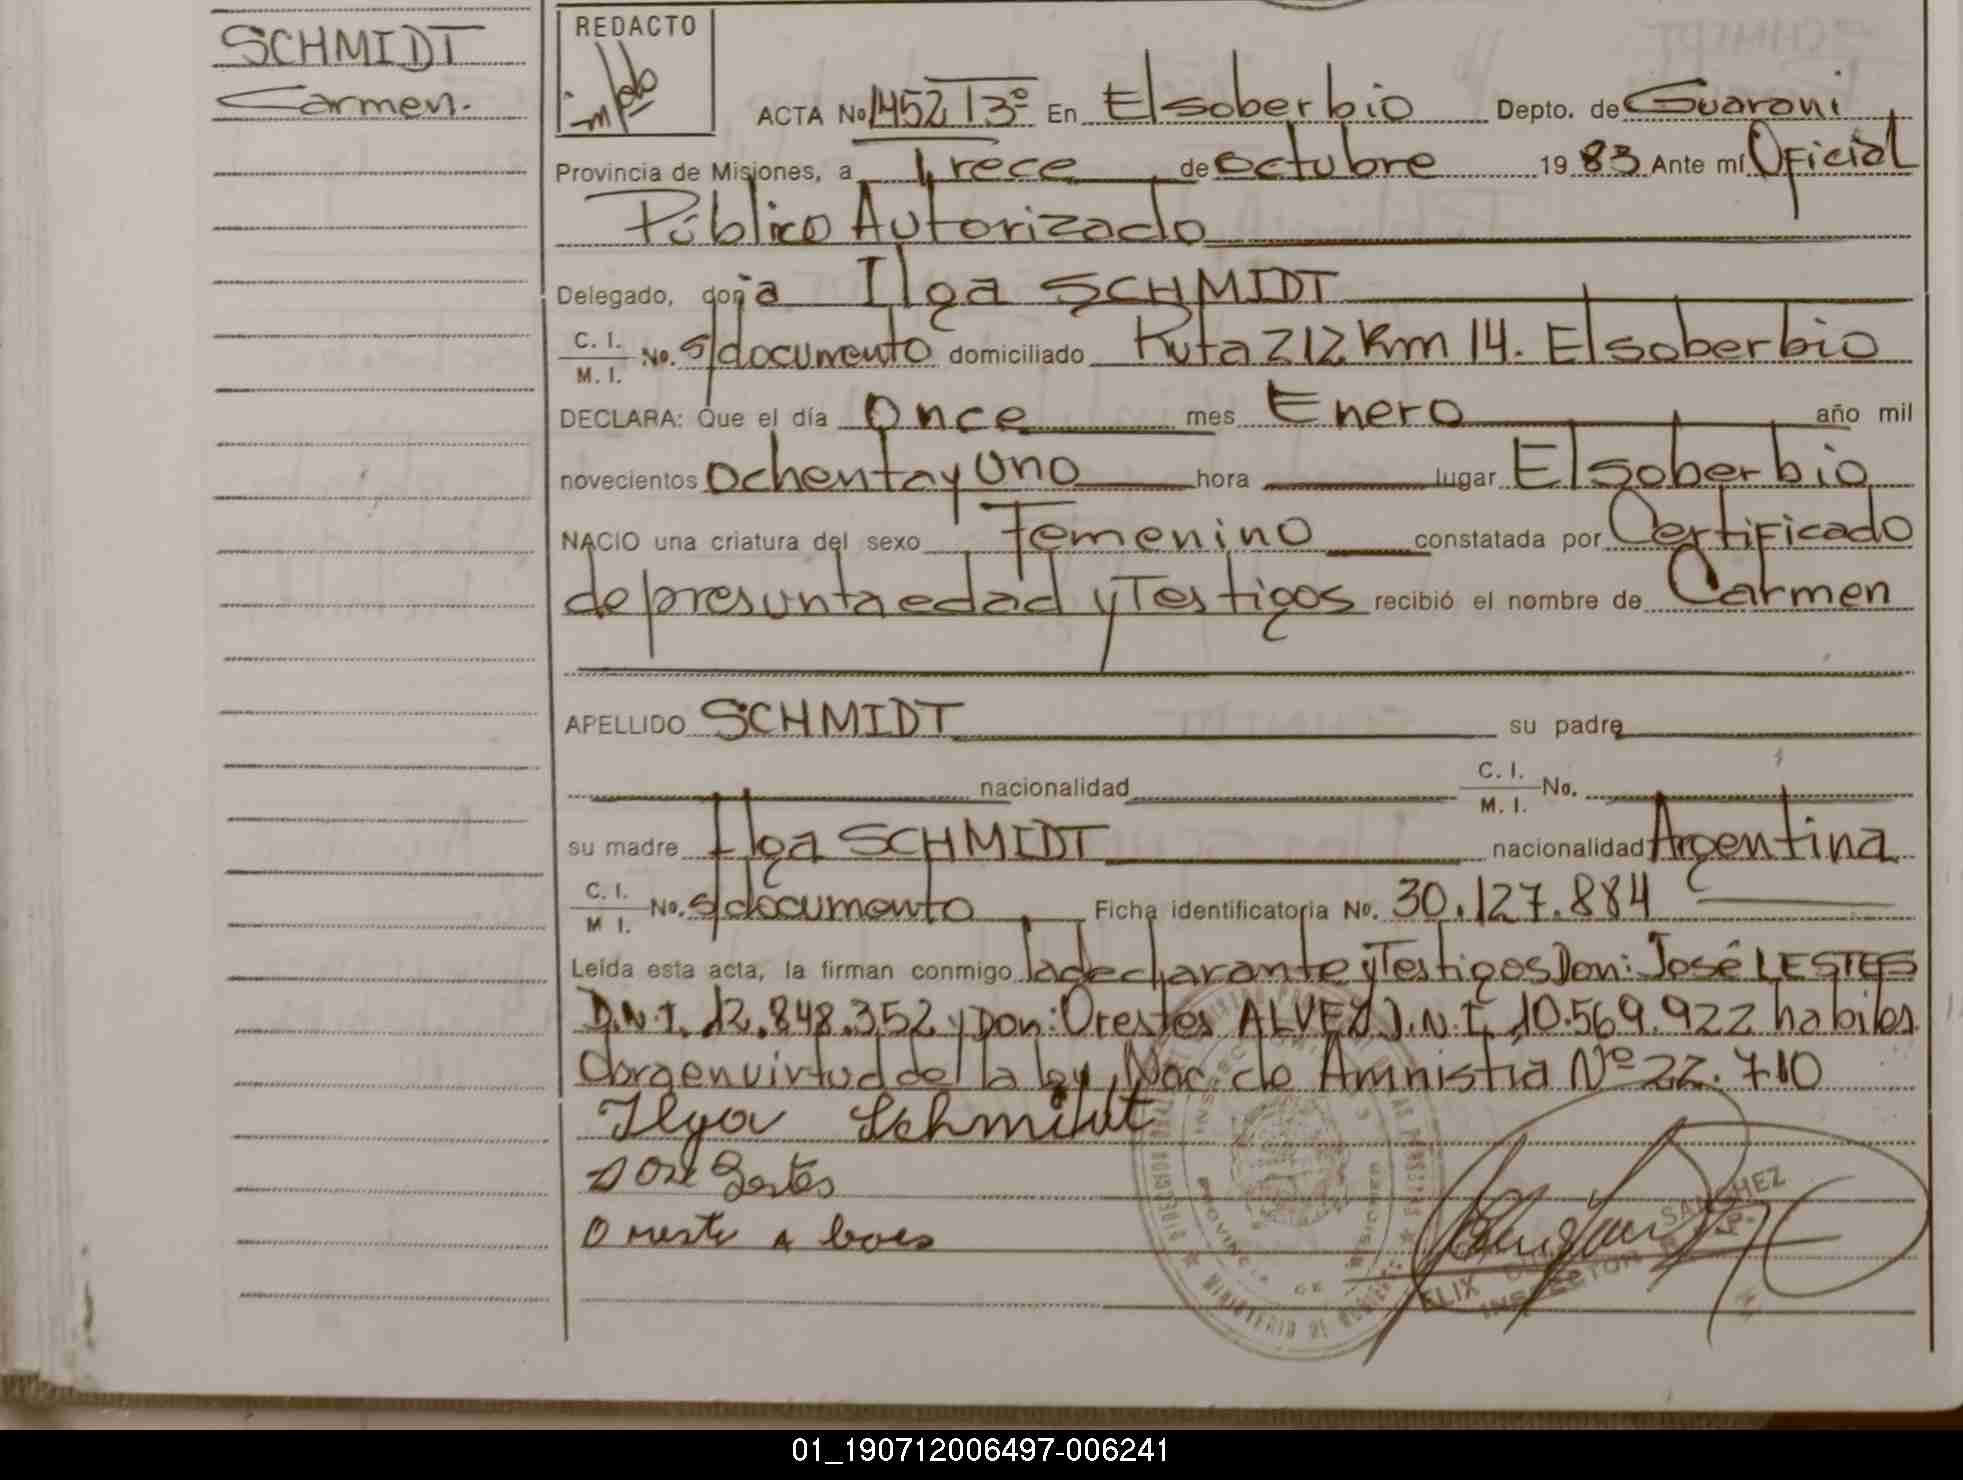 SCHMIDT
Carmen.
REDACTO
ACTA No 1452 T 3º En El soberbio Depto. de Guarani
Provincia de Misiones, a trece de octubre 19 83 Ante mí Oficial
Público Autorizado
Delegado, doña Ilga SCHMIDT
C. I.
M. I. No. s/documento domiciliado Ruta 212 Km 14. El soberbio
DECLARA: Que el día Once mes Enero año mil
novecientos Ochenta y Uno hora lugar El soberbio
NACIO una criatura del sexo Femenino constatada por Certificado
de presunta edad y Testigos recibió el nombre de Carmen
APELLIDO SCHMIDT su padre
nacionalidad C. I.
M. I. No.
su madre Ilga SCHMIDT nacionalidad Argentina
C. I.
M I. No. s/documento Ficha identificatoria No. 30.127.884
Leída esta acta, la firman conmigo la declarante y Testigos Don: José LESTES
D.N.I. 12.848.352 y Don: Orestes ALVEZ D.N.I. 10.569.922 habiles
Obra en virtud de la ley Nac. de Amnistia Nº 22.710
Ilga Schmidt
José Lestes
SANCHEZ
INSPECTOR
PROVINCIA DE MISIONES
01_190712006497-006241